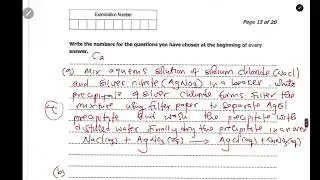 Examination Number
Page 15 of 20
Write the numbers for the questions you have chosen at the beginning of every
answer.
C2
(a) Mix aqueous solution of sodium chloride (NaCl)
and silver nitrate (AgNO3) in a beacer. White
precipitate of silver chloride forms. Filter the
mixture using filter paper to separate AgCl
precipitate and wash the precipitate with
distilled water. Finally dry the precipitate in an oven
NaCl(aq) + AgNO3(aq) → AgCl(s) + NaNO3(aq)
(b)